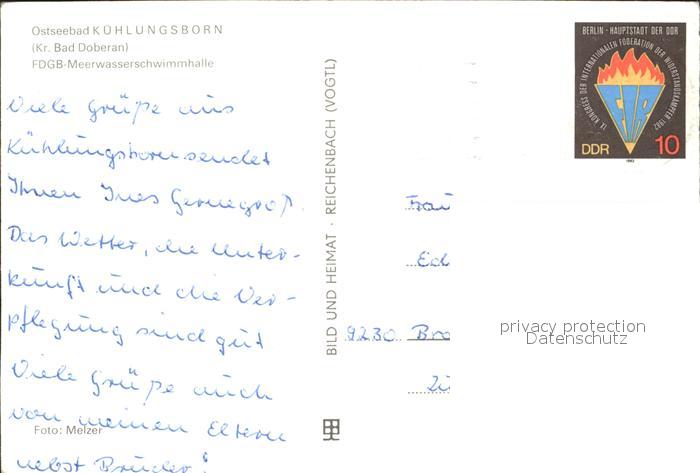 Ostseebad KÜHLUNGSBORN
(Kr. Bad Doberan)
FDGB-Meerwasserschwimmhalle
Viele Grüße aus
Kühlungsborn sendet
Ihnen Ines Gernegroß.
Das Wetter, die Unter-
kunft und die Ver-
pflegung sind gut
Viele Grüße auch
von meinen Eltern
nebst Bruder!
Foto: Melzer
BILD UND HEIMAT · REICHENBACH (VOGTL)
BERLIN · HAUPTSTADT DER DDR
IX. KONGRESS DER INTERNATIONALEN FÖDERATION DER WIDERSTANDSKÄMPFER 1982
FIR
DDR 10
1982
Frau
9230 Bro
privacy protection
Datenschutz